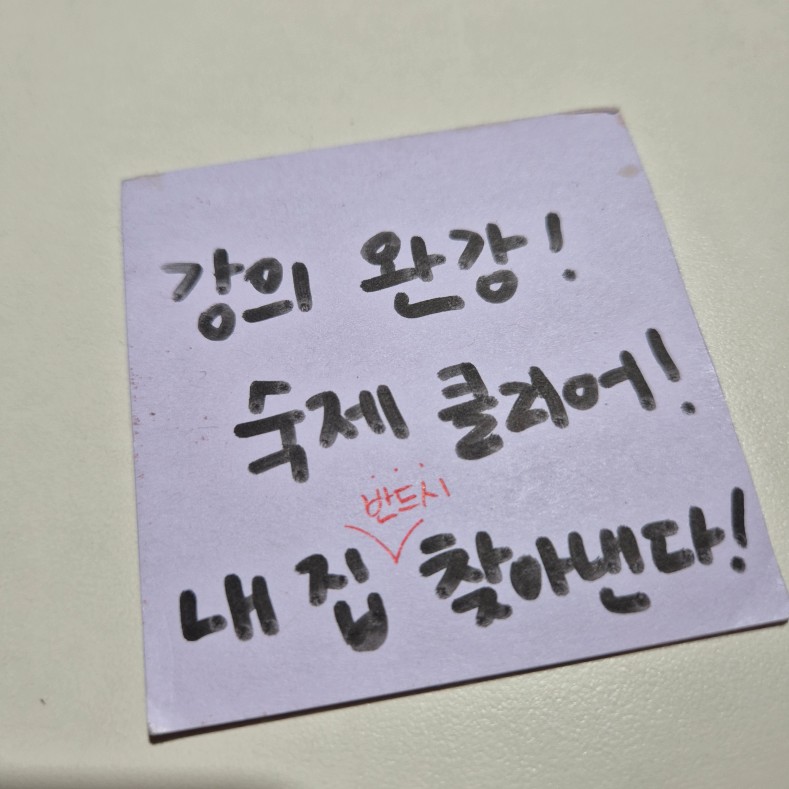 강의 완강!
숙제 클리어!
반드시
내 집 찾아낸다!